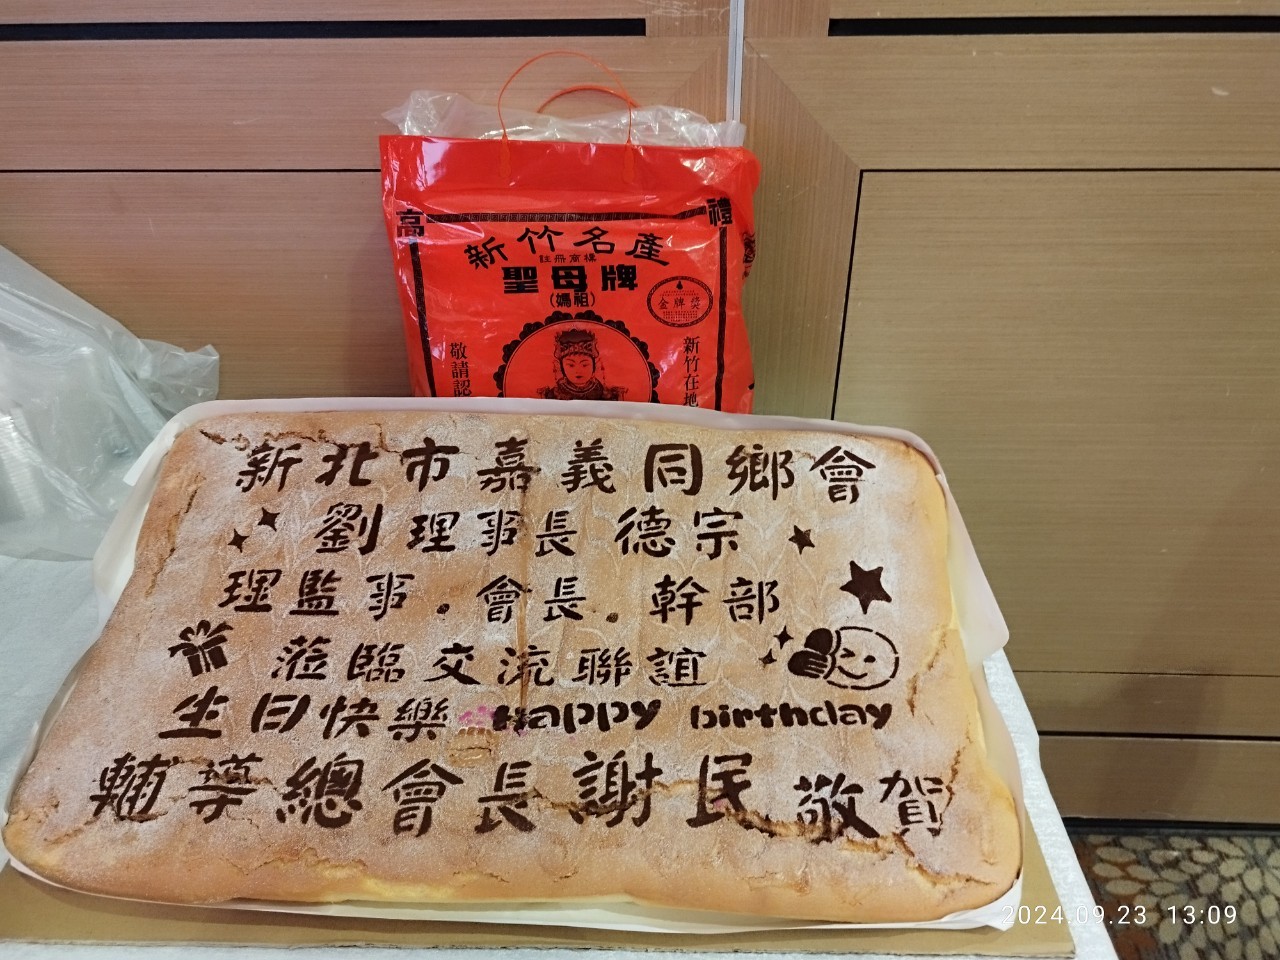 高
禮
新竹名產
註冊商標
聖母牌
(媽祖)
金牌獎
敬請認
新竹在地
新北市嘉義同鄉會
劉理事長德宗
理監事.會長.幹部
蒞臨交流聯誼
生日快樂 Happy birthday
輔導總會長謝民敬賀
2024.09.23 13:09